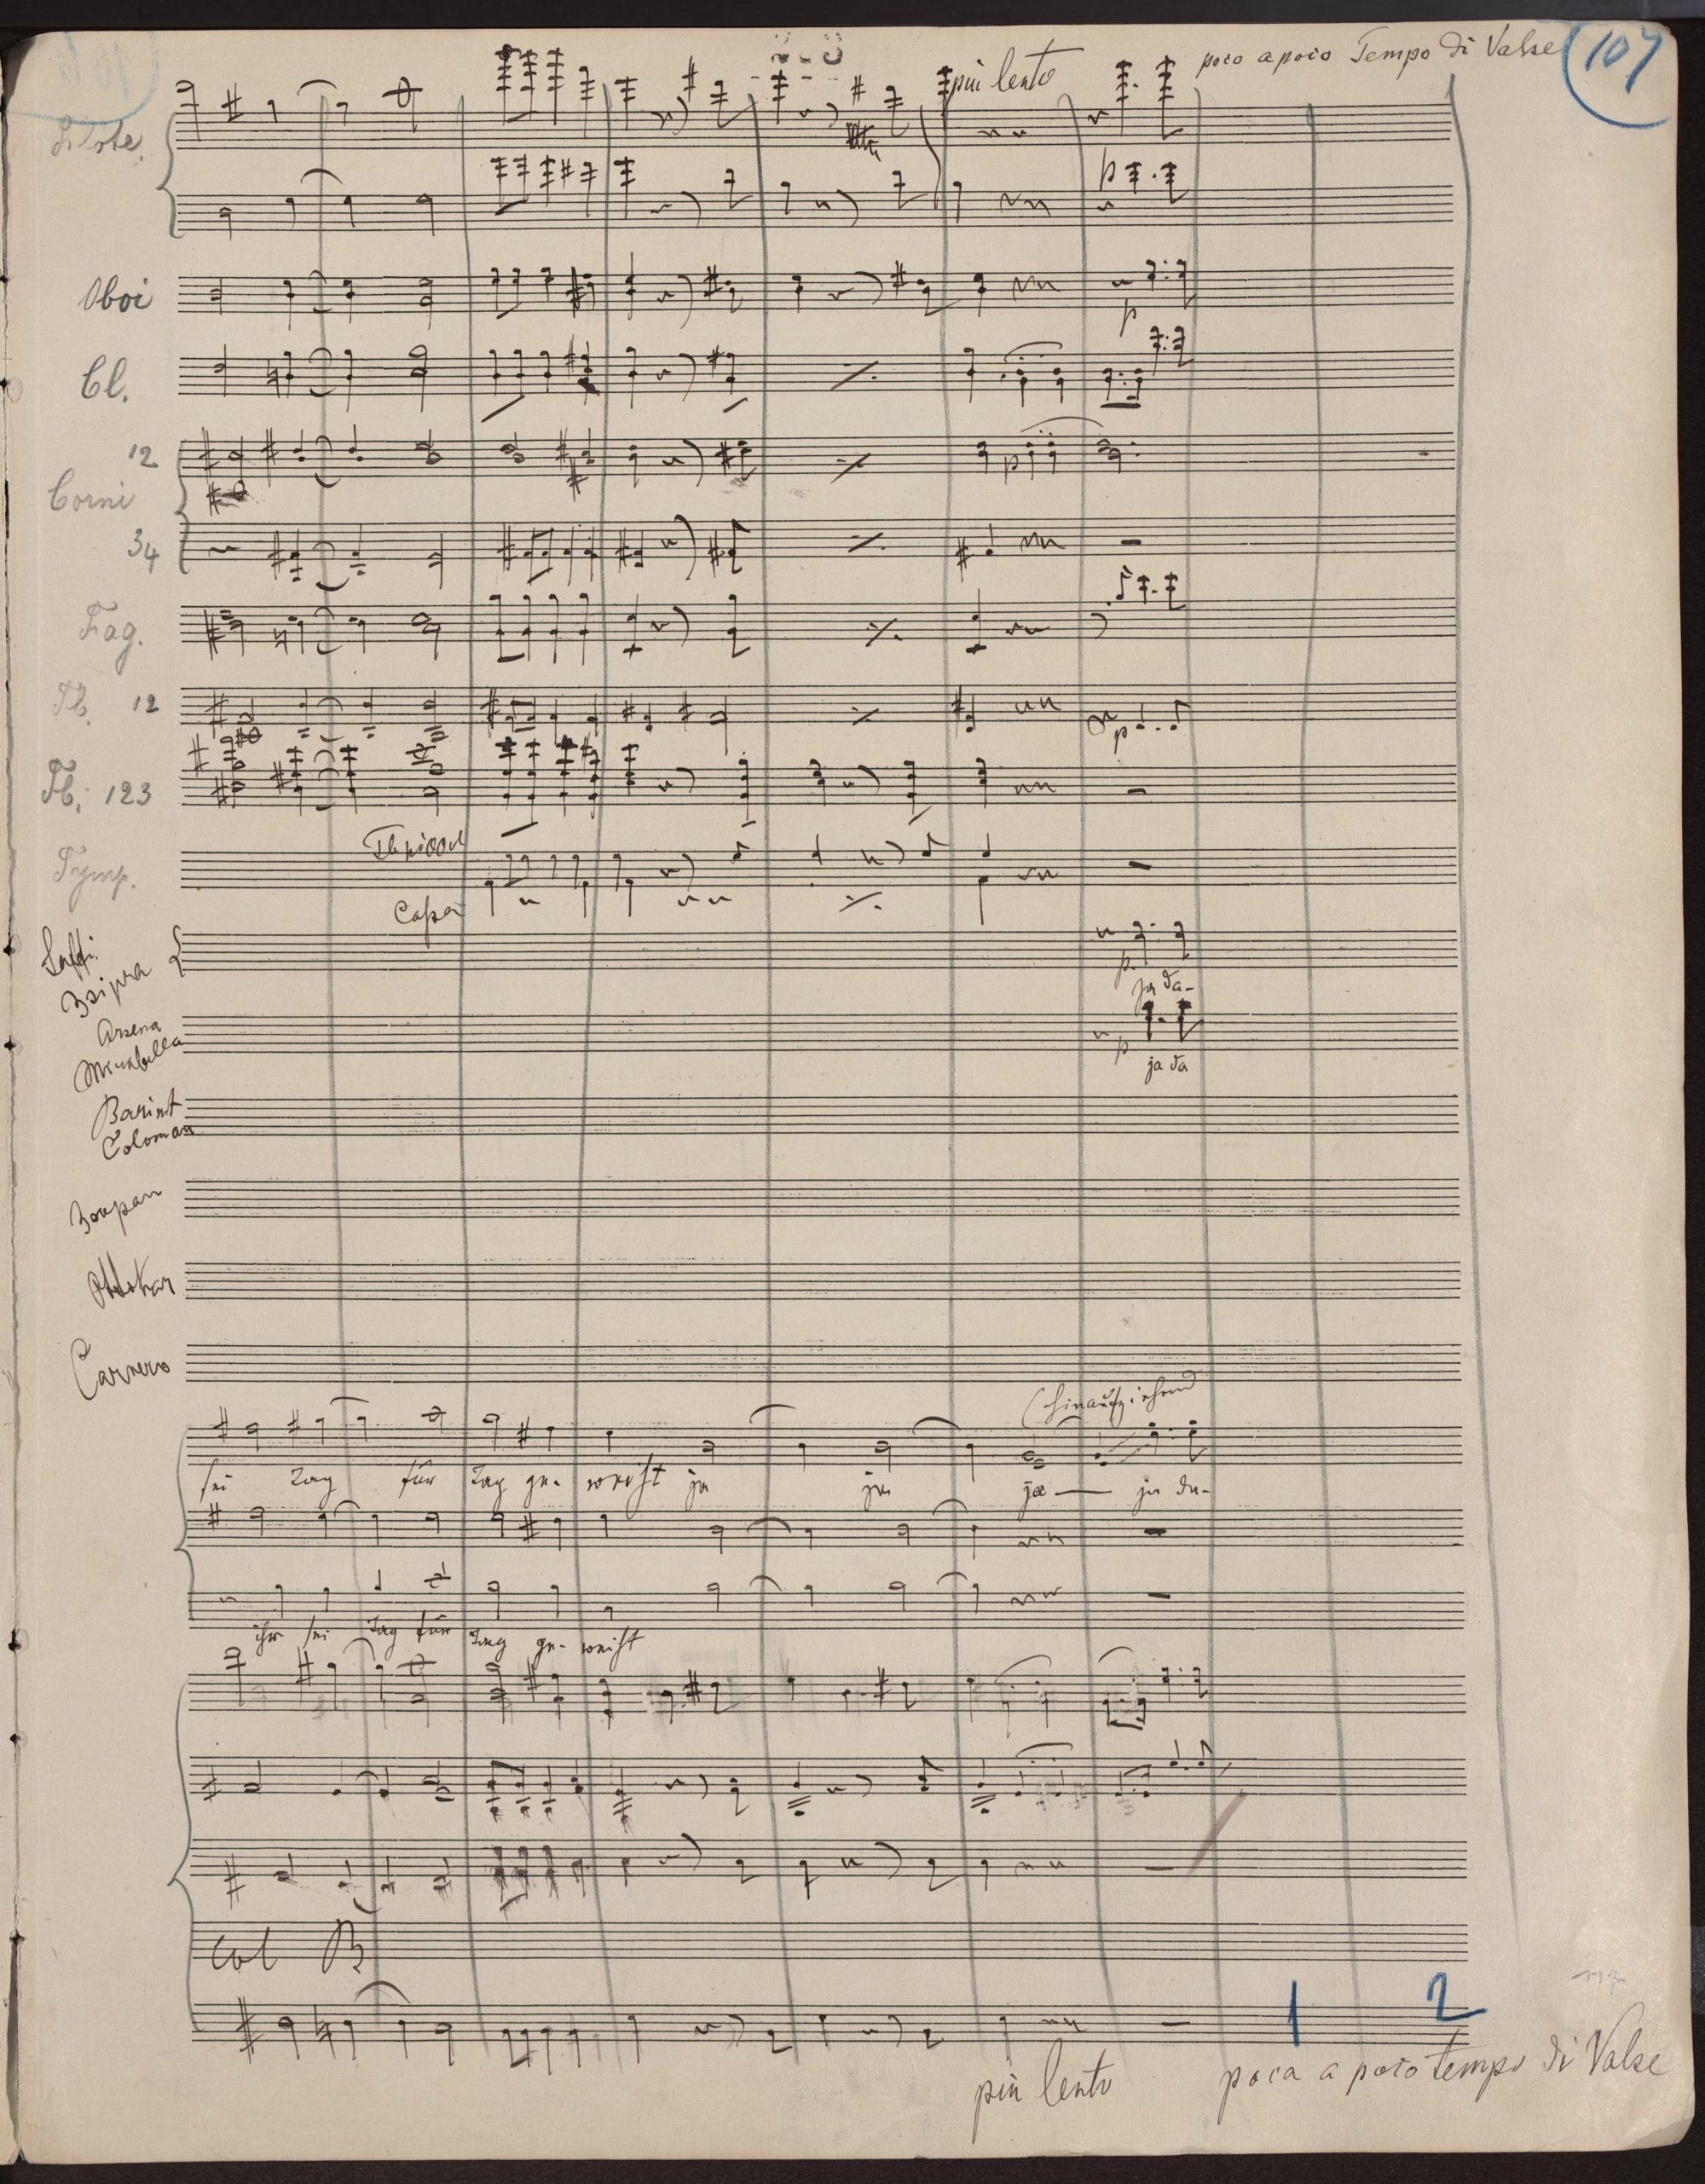 più lento
poco a poco Tempo di Valse
107
Flöte
p
Oboi
p
Cl.
12
p
Corni
34
Fag.
Tb. 12
p
Tb. 123
Tymp.
Cassa
Saffi
Zsipra
p
ja da-
Arsena
Mirabella
p
ja da
Barint
Coloman
Zsupan
Ottokar
Carnero
(hinaufziehend
sei Tag für Tag ge- weiht ja ja ja — ja da-
ihr sei Tag für Tag ge- weiht
Col B
1 2
più lento poco a poco tempo di Valse